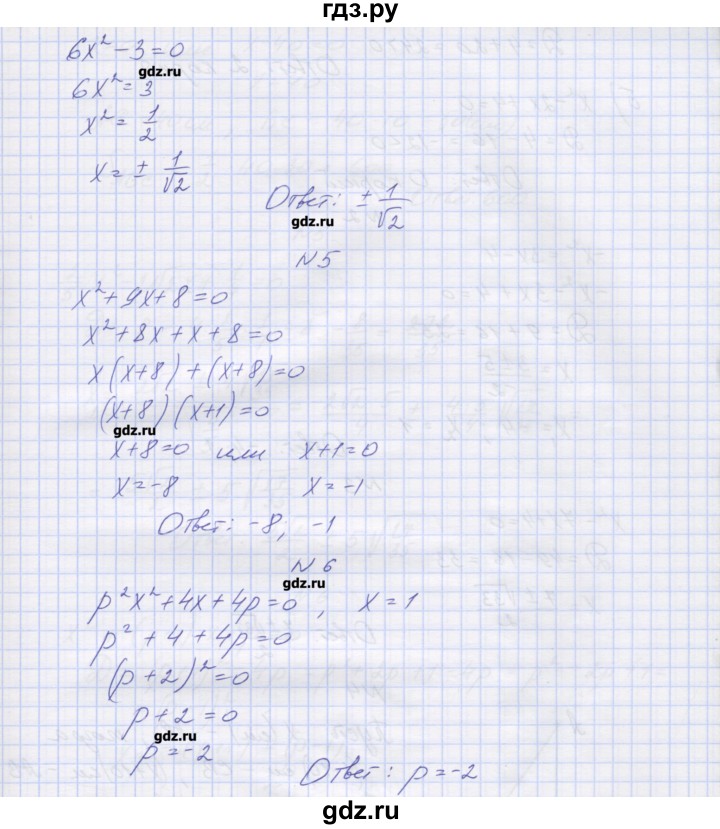 гдз.ру
6x² − 3 = 0
gdz.ru
6x² = 3
x² = 1/2
x = ± 1/√2
Ответ: ± 1/√2
gdz.ru
N5
x² + 9x + 8 = 0
x² + 8x + x + 8 = 0
x(x+8) + (x+8) = 0
(x+8)(x+1) = 0
gdz.ru
x+8=0 или x+1=0
x = −8 x = −1
Ответ: −8; −1
N6
gdz.ru
p²x² + 4x + 4p = 0, x = 1
p² + 4 + 4p = 0
(p + 2)² = 0
p + 2 = 0
gdz.ru
p = −2
Ответ: p = −2
gdz.ru
gdz.ru